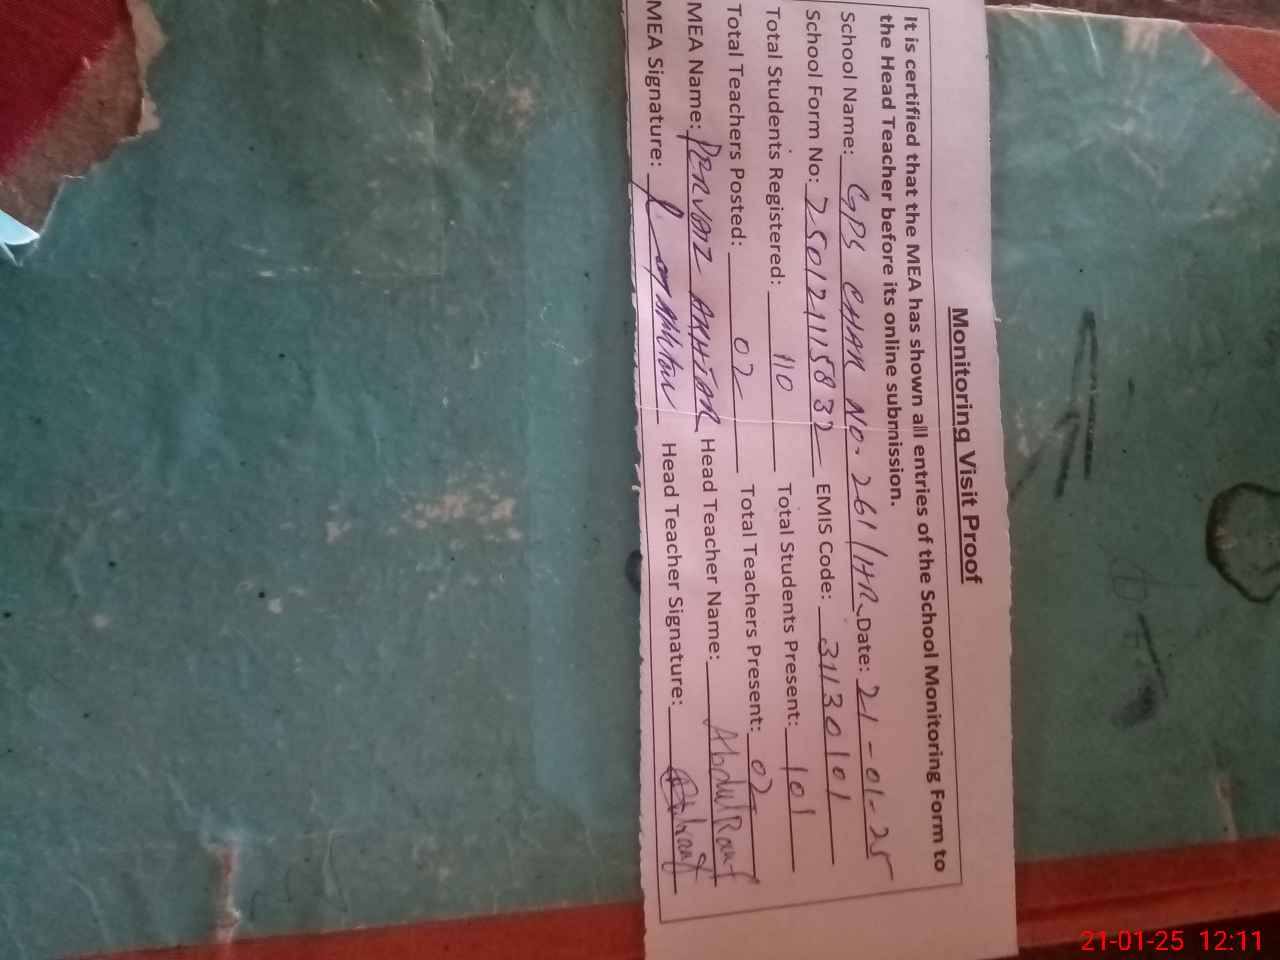 Monitoring Visit Proof
It is certified that the MEA has shown all entries of the School Monitoring Form to
the Head Teacher before its online submission.
School Name: GPS CHAK NO. 261/HR Date: 21-01-25
School Form No: 25012115832 EMIS Code: 31130101
Total Students Registered: 110 Total Students Present: 101
Total Teachers Posted: 02 Total Teachers Present: 02
MEA Name: PERVAIZ AKHTAR Head Teacher Name: Abdul Rauf
MEA Signature: Head Teacher Signature:
21-01-25 12:11